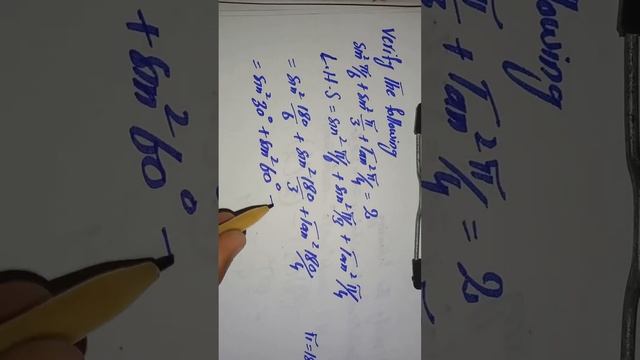 Verify The following
Sin² π/6 + Sin² π/3 + Tan² π/4 = 2
L.H.S = Sin² π/6 + Sin² π/3 + Tan² π/4
= Sin² 180/6 + Sin² 180/3 + Tan² 180/4
= Sin² 30° + Sin² 60°